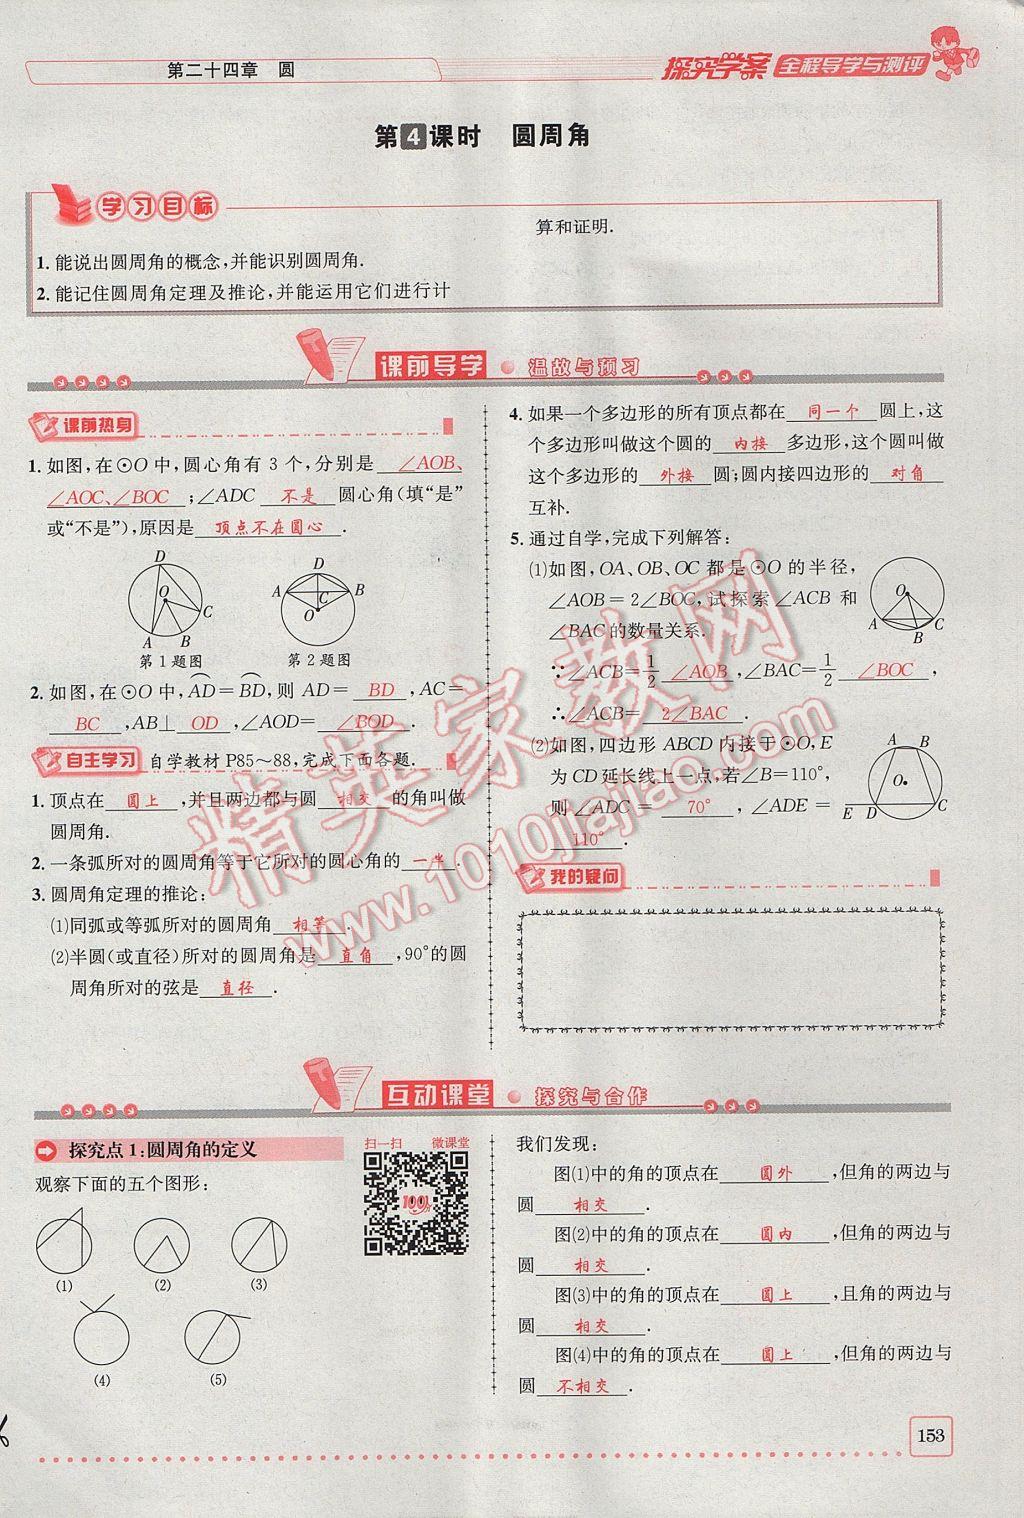 第二十四章　圆
探究学案 全程导学与测评
第4课时　圆周角
学习目标
1.能说出圆周角的概念,并能识别圆周角.
2.能记住圆周角定理及推论,并能运用它们进行计
算和证明.
课前导学 · 温故与预习
课前热身
1.如图,在⊙O中,圆心角有3个,分别是 ∠AOB、
∠AOC、∠BOC ;∠ADC 不是 圆心角(填“是”
或“不是”),原因是 顶点不在圆心 .
D
O
C
A B
第1题图
D
A B
C
O
第2题图
2.如图,在⊙O中,A͡D=B͡D,则 AD= BD ,AC=
BC ,AB⊥ OD ,∠AOD= ∠BOD .
自主学习 自学教材P85~88,完成下面各题.
1.顶点在 圆上 ,并且两边都与圆 相交 的角叫做
圆周角.
2.一条弧所对的圆周角等于它所对的圆心角的 一半 .
3.圆周角定理的推论:
(1)同弧或等弧所对的圆周角 相等 .
(2)半圆(或直径)所对的圆周角是 直角 ,90°的圆
周角所对的弦是 直径 .
4.如果一个多边形的所有顶点都在 同一个 圆上,这
个多边形叫做这个圆的 内接 多边形,这个圆叫做
这个多边形的 外接 圆;圆内接四边形的 对角
互补.
5.通过自学,完成下列解答:
(1)如图,OA、OB、OC都是⊙O的半径,
∠AOB=2∠BOC,试探索∠ACB和
∠BAC的数量关系.
O
A B C
∵∠ACB=1/2 ∠AOB ,∠BAC=1/2 ∠BOC ,
∴∠ACB= 2∠BAC .
(2)如图,四边形ABCD内接于⊙O,E
为CD延长线上一点,若∠B=110°,
则∠ADC= 70° ,∠ADE=
110° .
A B
O
E D C
我的疑问
互动课堂 · 探究与合作
探究点1:圆周角的定义
扫一扫 微课堂
观察下面的五个图形:
(1) (2) (3)
(4) (5)
我们发现:
图(1)中的角的顶点在 圆外 ,但角的两边与
圆 相交 .
图(2)中的角的顶点在 圆内 ,但角的两边与
圆 相交 .
图(3)中的角的顶点在 圆上 ,且角的两边与
圆 相交 .
图(4)中的角的顶点在 圆上 ,但角的两边与
圆 不相交 .
153
精英家教网
www.1010jiajiao.com